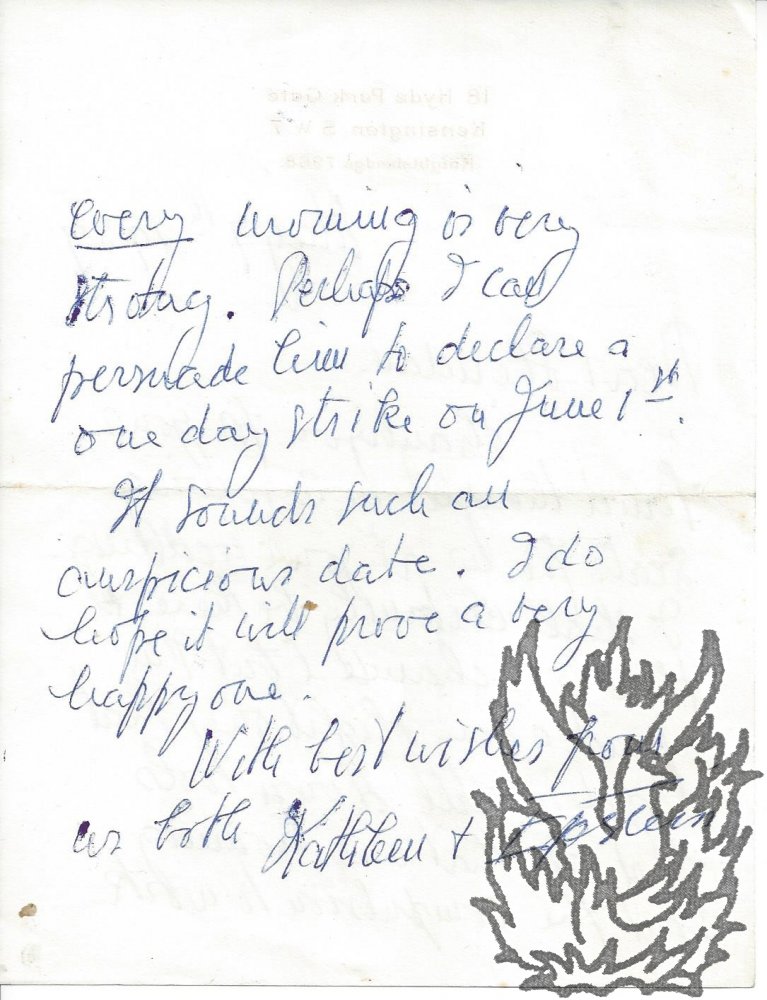 every morning is very
strong. Perhaps I can
persuade him to declare a
one day strike on June 1st.
It sounds such an
auspicious date. I do
hope it will prove a very
happy one.
With best wishes from
us both Kathleen + Epstein